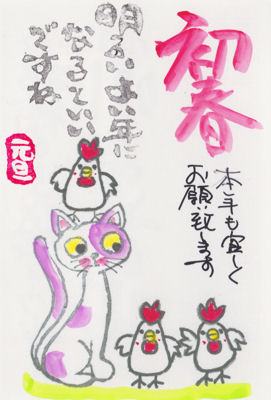 初春
本年も宜しく
お願い致します
明るいよい年に
なるといい
ですね
元旦